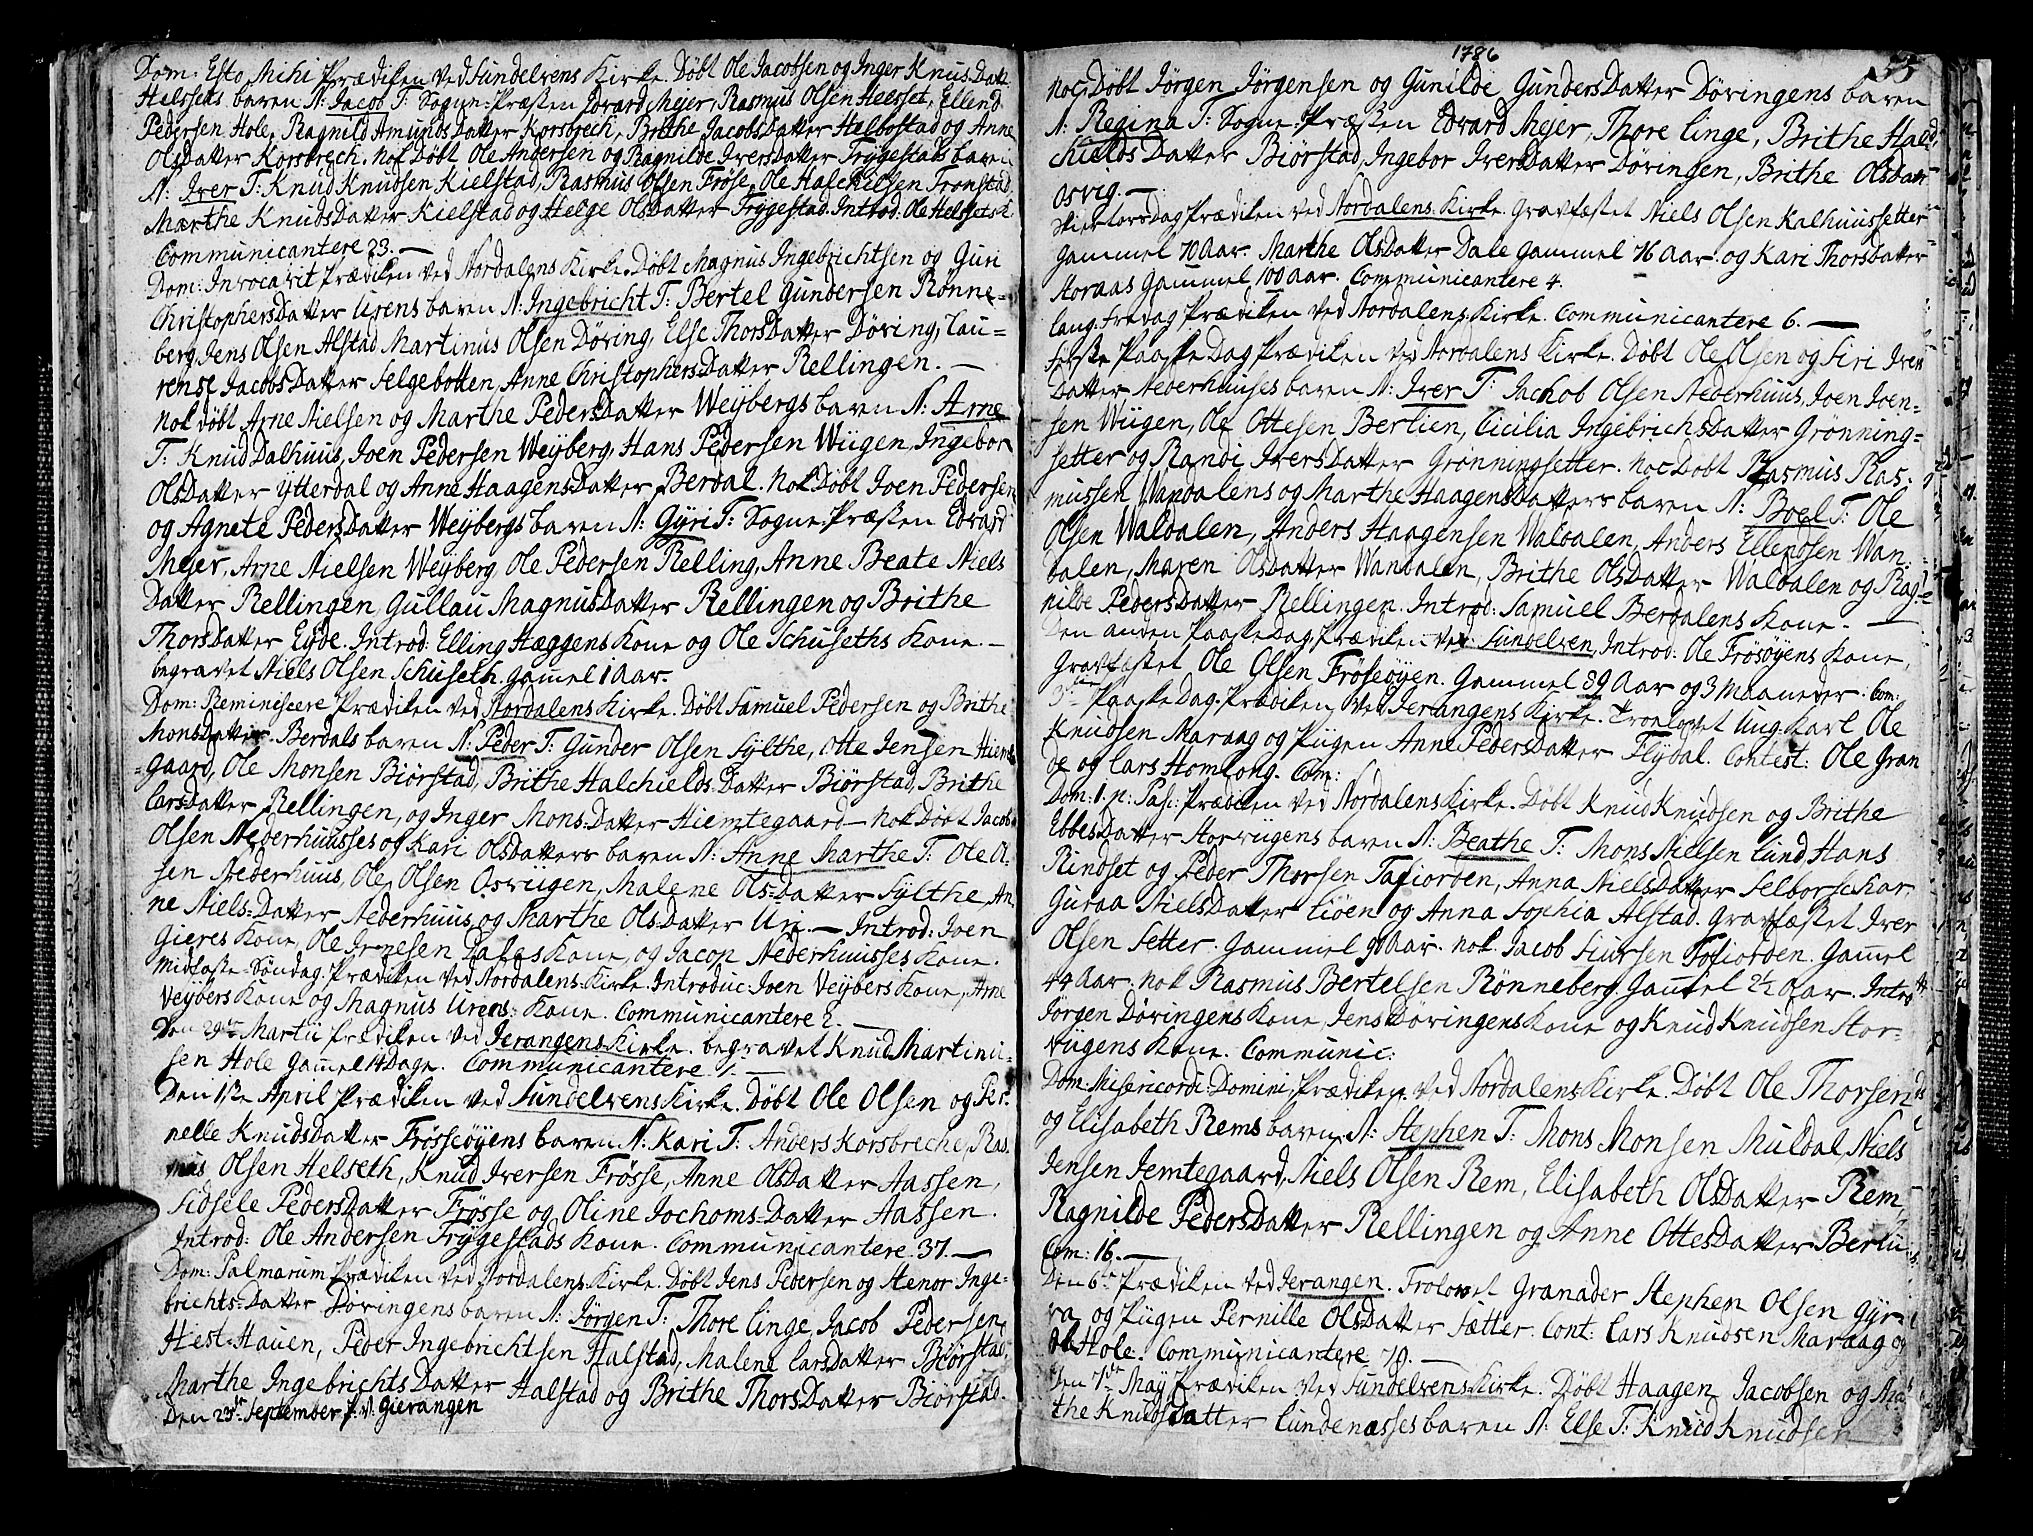 Dom: Esto Mihi Prædiken ved Sundelvens Kirke. Døbt Ole Jacobsen og Inger KnusDatter
Helsets baren N: Jacob T: Sogne-Præsten Edvard Mejer, Rasmus Olsen Helsset, Ellend
Pedersen Hole, Ragnild AmundsDatter Korsbrech, Brithe JacobsDatter Helbostad og Anne
OlsDatter Korsbrech. Nok Døbt Ole Andersen og Ragnilde IversDatter Frygestads baren
N: Iver T: Knud Knudsen Kielstad, Rasmus Olsen Frøse, Ole Halckilsen Tronstad,
Marthe KnudsDatter Kielstad og Helge OlsDatter Frygestad. Introd: Ole Helssets K.
Communicantere 23. —
Dom: Invocavit Prædiken ved Nordalens Kirke. Døbt Magnus Ingebrichtsen og Guri
ChristophersDatter Urens baren N: Ingebricht T: Bertel Gundersen Rønne-
berg, Jens Olsen Alstad, Martinus Olsen Døring, Else ThorsDatter Døring, Lau-
rense JacobsDatter Selgebotten, Anne ChristophersDatter Rellingen. —
Nok døbt Arne Nielsen og Marthe PedersDatter Weybergs baren N: Arne
T: Knud Dalhuus, Joen Pedersen Weyberg, Hans Pedersen Wiigen, Ingebor
OlsDatter Ytterdal og Anne HaagensDatter Berdal. Nok Døbt Joen Pedersen
og Agnete PedersDatter Weybergs baren N: Gyri T: Sogne-Præsten Edvard
Mejer, Arne Nielsen Weyberg, Ole Pedersen Relling, Anne Beate Niels
Datter Rellingen, Gullau MagnusDatter Rellingen og Brithe
ThorsDatter Eyde. Introd: Elling Hæggens Kone og Ole Schuseths Kone. —
begravet Niels Olsen Schuseth. Gamel 1 Aar.
Dom: Reminiscere Prædiken ved Nordalens Kirke. Døbt Samuel Pedersen og Brithe
MonsDatter Berdals baren N: Peder T: Gunder Olsen Sylthe, Otte Jensen Hiemte
gaard, Ole Monsen Biørstad, Brithe Halchields-Datter Biørstad, Brithe
LarsDatter Rellingen, og Inger Mons-Datter Hiemtegaard — Nok Døbt Jacob
Olsen Nederhuusses og Kari OlsDatters baren N: Anne Marthe T: Ole Ol-
sen Nederhuus, Ole Olsen Osviigen, Malene Ols-Datter Sylthe, An-
ne Niels-Datter Nederhuus og Marthe Ols-Datter Uri. — Introd: Joen
Gieres Kone, Ole Dales Kone, og Jacop Nederhuusses Kone.
Midfaste Søndag Prædiken ved Nordalens Kirke. Introduc: Joen Veybers Kone, Arne
Veybers Kone og Magnus Urens Kone. Communicantere 2. —
Den 29de Martii Prædiken ved Ierangens Kirke. begravet Knud Martinii-
sen Hole Gamel 14 Dage. Communicantere 1. —
Den 1ste April Prædiken ved Sundelvens Kirke. Døbt Ole Olsen og Per-
nelle KnudsDatter Frøsseøyens baren N: Kari T: Anders Korsbreche, Ras-
mus Olsen Helseth, Knud Iversen Frøsse, Anne OlsDatter Aassen,
Sidsele PedersDatter Frøsse og Oline Jochoms-Datter Aassen.
Introd: Ole Andersen Frygestads Kone. Communicantere 37. —
Dom: Palmarum Prædiken ved Nordalens Kirke. Døbt Jens Pedersen og Stenor Inge-
brichts-Datter Døringens baren N: Jørgen T: Thore Linge, Jacob Pedersen
Hest-Hauen, Peder Ingebrichtsen Halstad, Malene LarsDatter Biørstad,
Marthe IngebrichtsDatter Halstad og Brithe ThorsDatter Biørstad.
Den 23de September P. V. Gierangen
1786
55
Noc Døbt Jørgen Jørgensen og Gunilde GundersDatter Døringens baren
N: Regina T: Sogne-Præsten Edvard Mejer, Thore Linge, Brithe Hald
chieldsDatter Biørstad, Ingebor IversDatter Døringen, Brithe OlsDatter
Osvig. —
Skiertorsdag Prædiken ved Nordalens Kirke. Gravfæstet Niels Olsen Kalhuussetter
Gammel 70 Aar. Marthe OlsDatter Dale Gammel 76 Aar og Kari ThorsDatter
Storaas Gammel 100 Aar. Communicantere 4.
Lang-Fredag Prædiken ved Nordalens Kirke. Communicantere 6. —
første PaaskeDag Prædiken ved Nordalens Kirke. Døbt Ole Olsen og Siri Ivers
Datter Nederhuuses baren N: Iver T: Jachob Olsen Nederhuus, Joen Joen-
sen Wiigen, Ole Ottesen Berlien, Cicilia IngebrichsDatter Grønning-
setter og Randi IversDatter Grønningsetter. Noc Døbt Rasmus Ras-
mussen Wandalens og Marthe HaagensDatters baren N: Boel T: Ole
Olsen Waldalen, Anders Haagensen Waldalen, Anders Ellendsen Wan-
dalen, Maren OlsDatter Wandalen, Brithe OlsDatter Waldalen og Rag-
nilde PedersDatter Rellingen. Introd: Samuel Berdalens Kone. —
Den anden PaaskeDag Prædiken ved Sundelven, Introd: Ole Frøsøyens Kone,
Gravfæstet Ole Olsen Frøseøyen. Gammel 89 Aar og 3 Maaneder. Com:
3de PaaskeDag Prædiken ved Ierangens Kirke. Troelovet Ung-Karl Ole
Knudsen Maraag og Piigen Anne PedersDatter Flydal. Contest: Ole Gran
de og Lars Homlong. Com:
Dom: 1. p: Pas: Prædiken ved Nordalens Kirke. Døbt Knud Knudsen og Brithe
EbbesDatter Storviigens baren N: Beathe T: Mons Nielsen Lund, Hans
Rindset og Peder Thorsen Tafiorden, Anna NielsDatter Selborsekar,
Guraa NielsDatter Liøen og Anna Sophia Alstad. Gravfæstet Iver
Olsen Setter. Gammel 90 Aar. Nok Jacob Siursen Tafiorden. Gamel
44 Aar. Nok Rasmus Bertelsen Rønneberg Gammel 2½ Aar. Introd:
Jørgen Døringens Kone, Jens Døringens Kone og Knud Knudsen Stor-
viigens Kone. Communic:
Dom: Misericordi: Domini Prædiken ved Nordalens Kirke. Døbt Ole Thorsen
og Elisabeth Rems baren N: Stephen T: Mons Monsen Muldal, Niels
Jensen Jemtegaard, Niels Olsen Rem, Elisabeth OlsDatter Rem,
Ragnilde PedersDatter Rellingen og Anne OttesDatter Berlii
Com: 16. —
Den 6te Prædiken ved Ierangen. Trolovet Granader Stephen Olsen Gyr-
va og Piigen Pernille OlsDatter Sætter. Cont: Lars Knudsen Maraag og
Ole Hole. Communicantere 70. —
Den 7de May Prædiken ved Sundelvens Kirke. Døbt Haagen Jacobsen og Mar
the KnudsDatter Lundenæsses baren N: Else T: Knud Knudsen